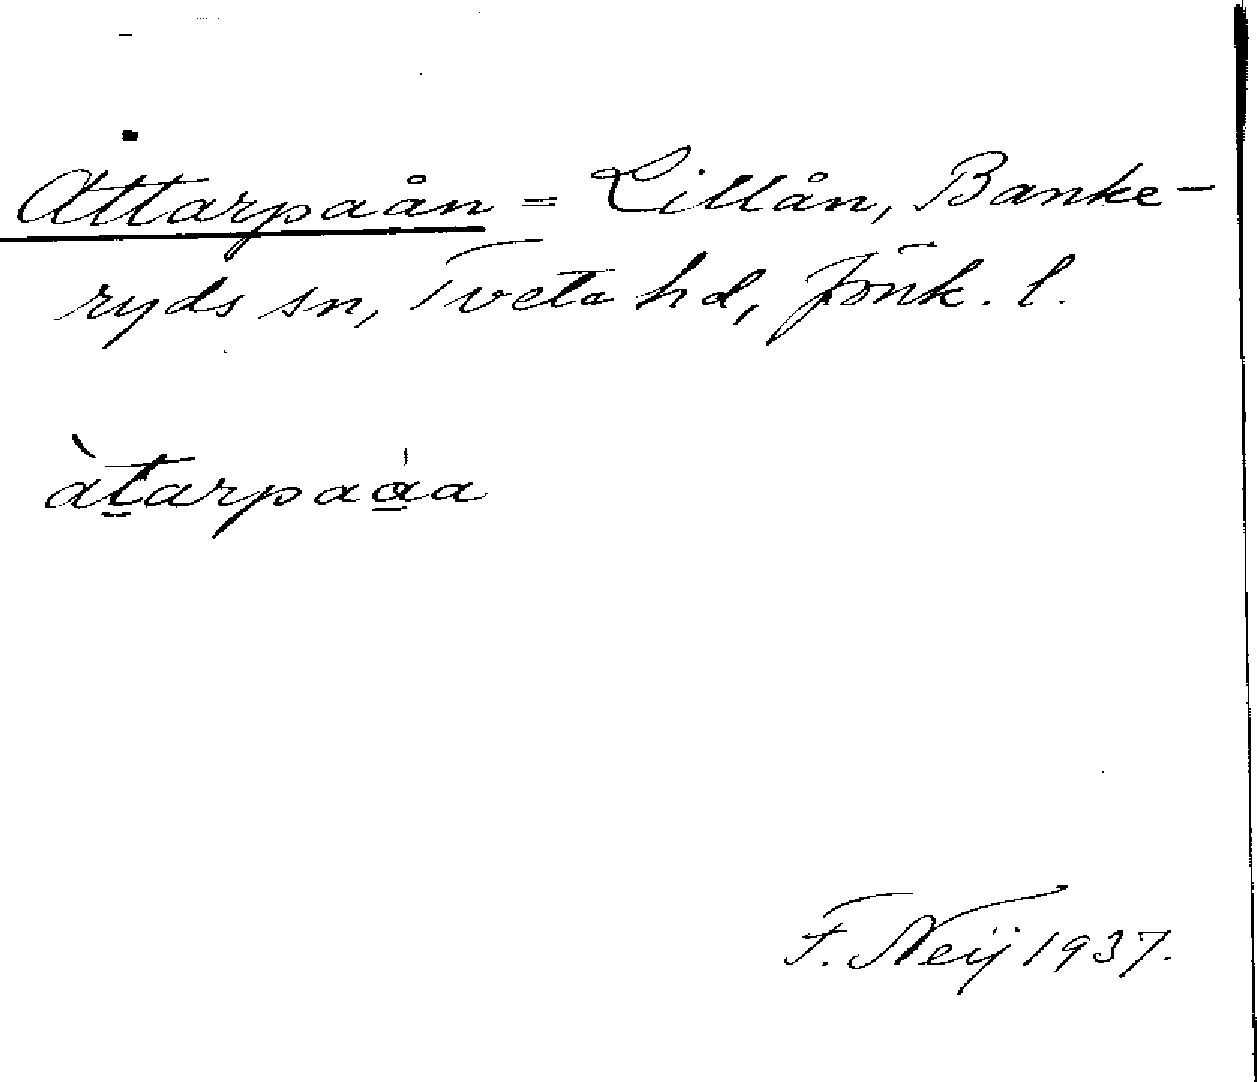 Attarpaån = Lillån, Banke-
ryds sn, Tveta hd, Jönk. l.
àtarpaȧa
F. Neij 1937.